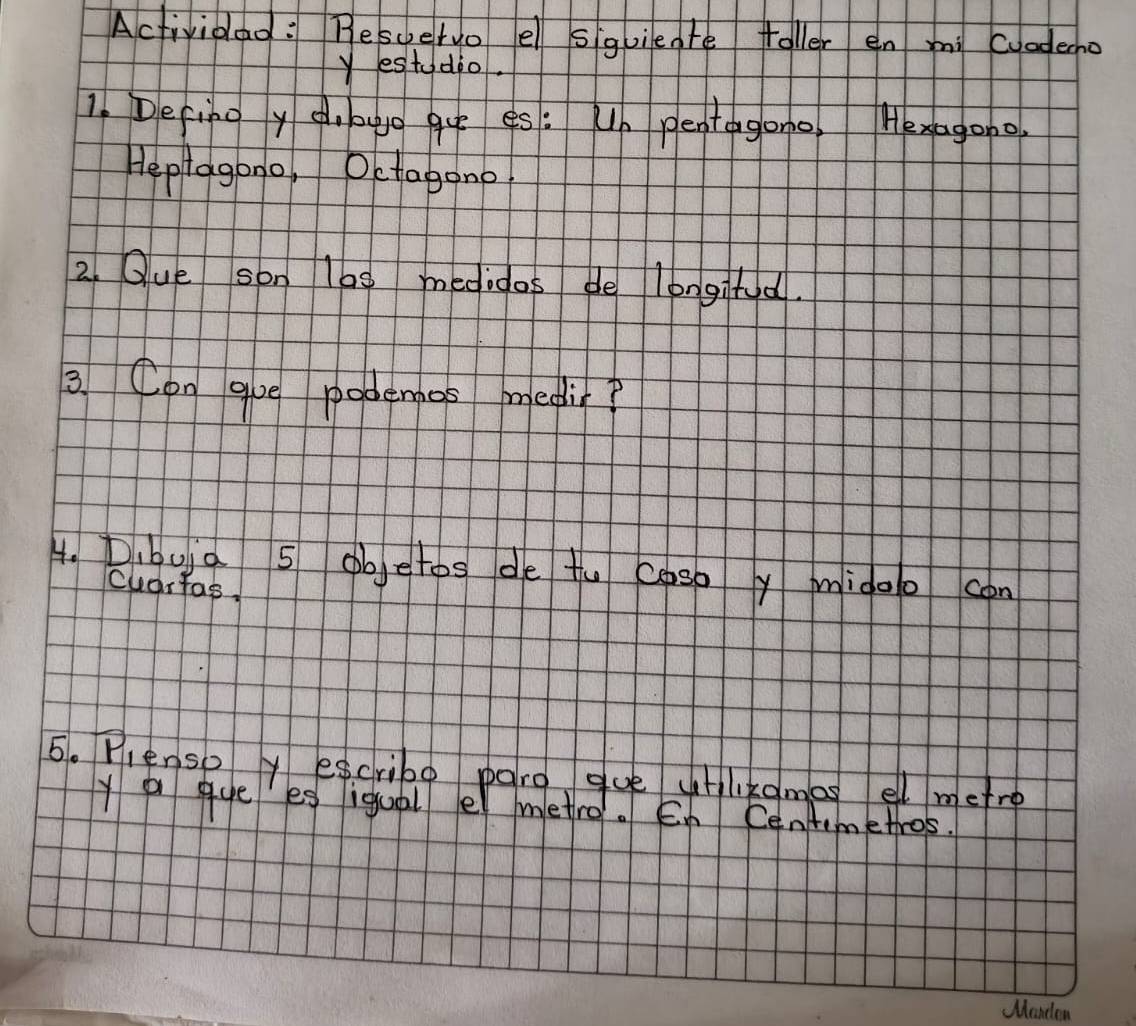 Actividad: Resuelvo el siguiente taller en mi cuaderno
y estudio.
1. Defino y dibujo que es: Un pentagono, Hexagono,
Heptagono, Octagono.
2. Que son las medidas de longitud.
3. Con que podemos medir?
4. Dibuja 5 objetos de tu casa y midalo con
cuartas.
5. Pienso y escribo para que utilizamos el metro
y a que es igual el metro. En Centimetros.
Marden